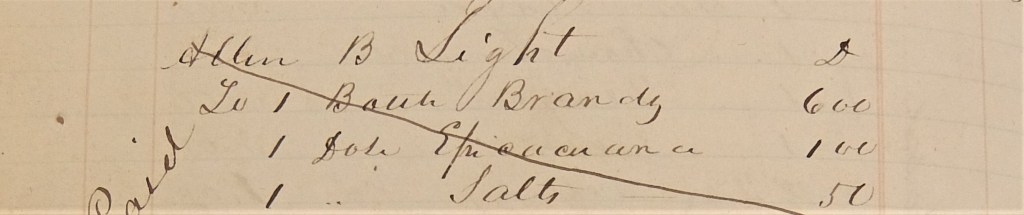 Allen B Light D
To 1 Bottle Brandy 600
1 Dose Epicacuana 100
1 " Salts 50
Paid